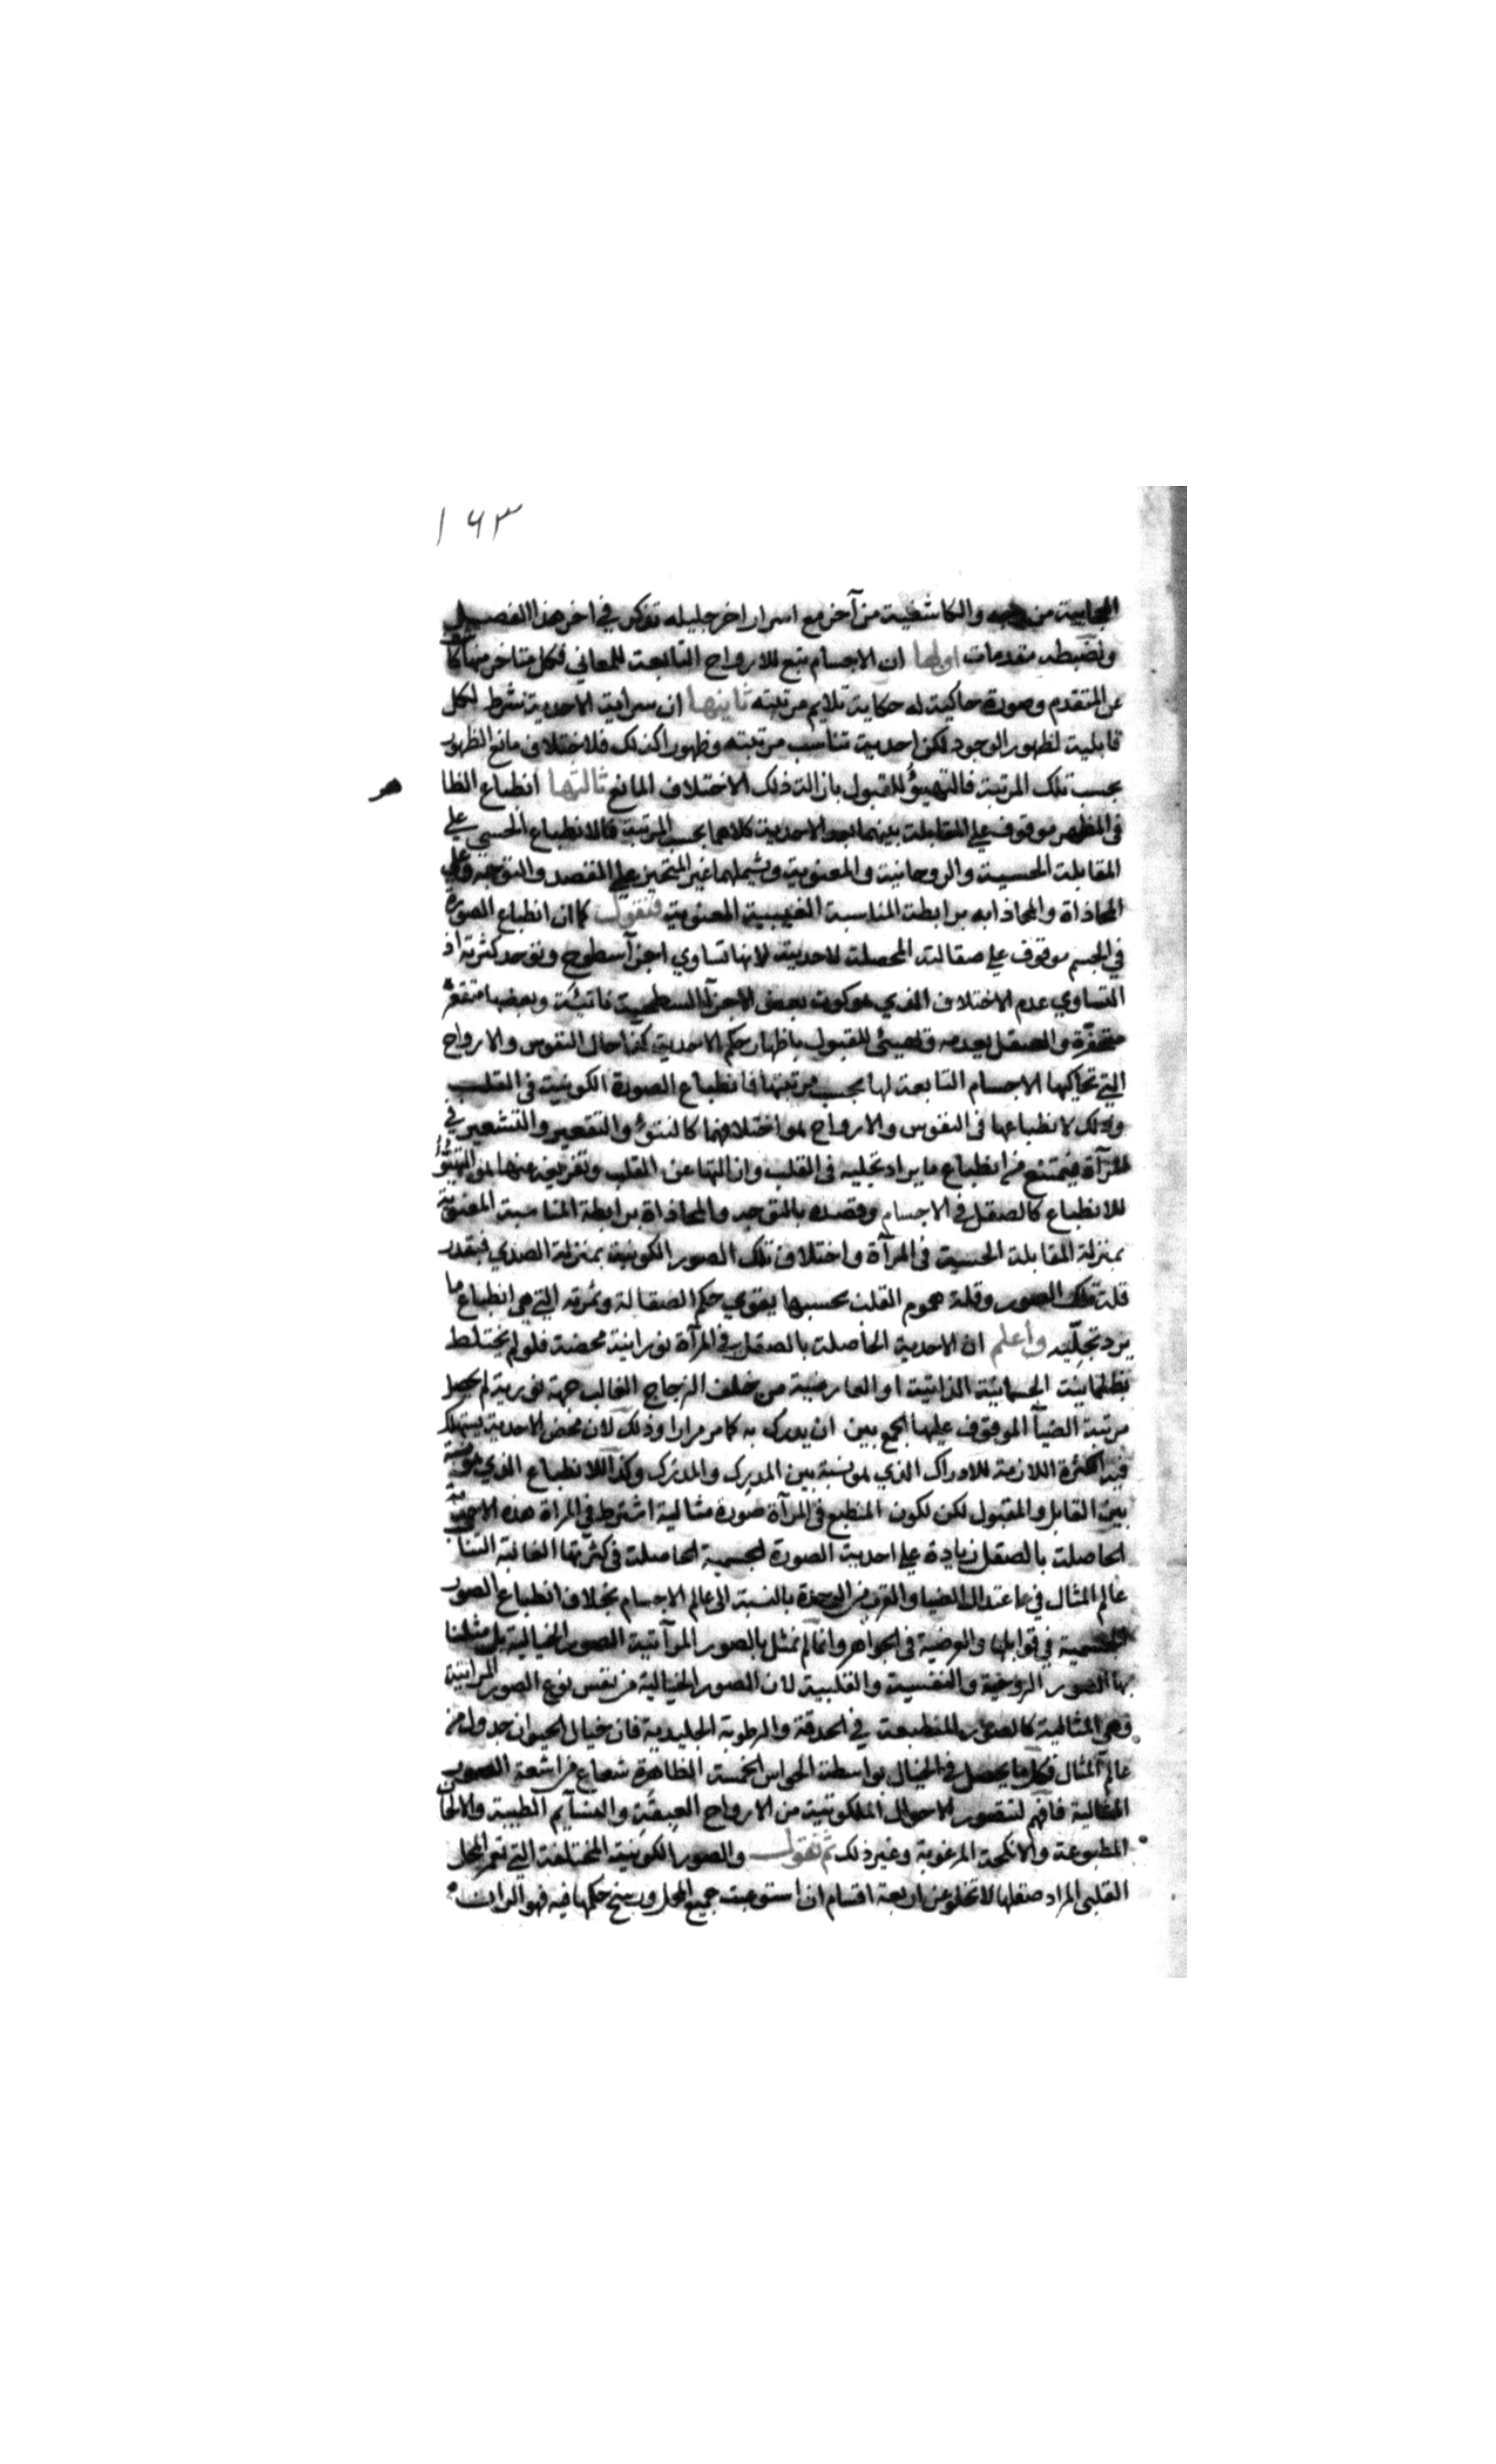 ١٦٣
الحجابية من وجه والكاشفية من آخر مع اسرار اخر جليله تذكر في اخر هذا الفصيل
ونضبطه مقدمات اولها ان الاجسام تبع للارواح التابعة للمعاني فكل متاخر منها
عن المتقدم وصورة حاكية له حكاية تلايم مرتبته ثانيها ان سراية الاحدية شرط لكل
قابلية لظهور الوجود لكن احدية تناسب مرتبته وظهورا كذلك فلاختلاف مانع الظهور
بحسب تلك المرتبة فالتهيؤ للقبول بازالة ذلك الاختلاف المانع ثالثها انطباع الظا
هر
في المظهر موقوف على المقابلة بينهما بعد الاحدية كلاهما بحسب المرتبة فالانطباع الحسي على
المقابلة الحسية والروحانية والمعنوية ويشملهما غير المتحيز على القصد والتوجه وعلى
المحاذاة والمحاذا به برابطة المناسبة الغيبية المعنوية فنقول كما ان انطباع الصورة
في الجسم موقوف على صقالته المحصلة لاحديته لانها تساوي اجزآ سطوح وتوحد كثرته اذ
التساوي عدم الاختلاف الذي هو كون بعض الاجزآ السطحية ناتئة وبعضها متقعرة
والصقل يعدمه للقبول باظهار حكم الاحدية كذا حال النفوس والارواح
التي تحاكيها الاجسام التابعة لها بحسب مرتبتها فانطباع الصورة الكونية في القلب
وكذلك لانطباعها في النفوس والارواح هو اختلافهما كالنتؤ والتقعير والتشعير في
المرآة فيمتنع من انطباع ما يراد تجليه في القلب وازالتها عن القلب وتفريغه عنها هو التهيؤ
للانطباع كالصقل في الاجسام وقصده بالتوجه والمحاذاة برابطة المناسبة المعنوية
بمنزلة المقابلة الحسية في المرآة واختلاف تلك الصور الكونية بمنزلة الصدي فبقدر
قلة تلك الصور وقلة هموم القلب بحسبها يقوي حكم الصقالة وثمرته التي هي انطباع ما
يرد تجليه واعلم ان الاحدية الحاصلة بالصقل في المرآة نورانية محضة فلو لم يختلط
بظلمانية الجسمانية الذاتية او العارضية من خلف الزجاج الغالب جهة نوريته لم يحصل
مرتبة الضيآ الموقوف عليها الجمع بين ان يدرك به كما مر مرارا وذلك لان محض الاحدية يستهلك
فيه الكثرة اللازمة للادراك الذي هو نسبة بين المدرِك والمدرَك وكذا للانطباع الذي هو نسبة
بين القابل والمقبول لكن لكون المنطبع في المرآة صورة مثالية اشترط في المرآة هذه الاحدية
الحاصلة بالصقل زيادة على احدية الصورة الجسمية الحاصلة في كثرتها الغالبة
عالم المثال في اعتدال الضيا والقرب من الوحدة بالنسبة الى عالم الاجسام بخلاف انطباع الصور
الجسمية في قوابلها والعرضية في الجواهر وانما لم نمثل بالصور المرآتية الصور الخيالية بل مثلنا
بها الصور الروحية والنفسية والقلبية لان الصور الخيالية من نفس نوع الصور المرآتية
وهي المثالية كالصور المنطبعة في الحدقة والرطوبة الجليدية فان خيال الحيوان جدول من
عالم المثال فكل ما يحصل في الخيال بواسطة الحواس الخمسة الظاهرة شعاع من اشعة الصور
المثالية فافهم لتتصور الاحوال الملكوتية من الارواح العبقة والنسآيم الطيبة والالحان
المطبوعة والانكحة المرغوبة وغير ذلك ثم نقول والصور الكونية المختلفة التي تعمر المحل
القلبي المراد صقلها لا تخلو عن اربعة اقسام ان استوعبت جميع المحل ورسخ حكمها فيه فهو الران